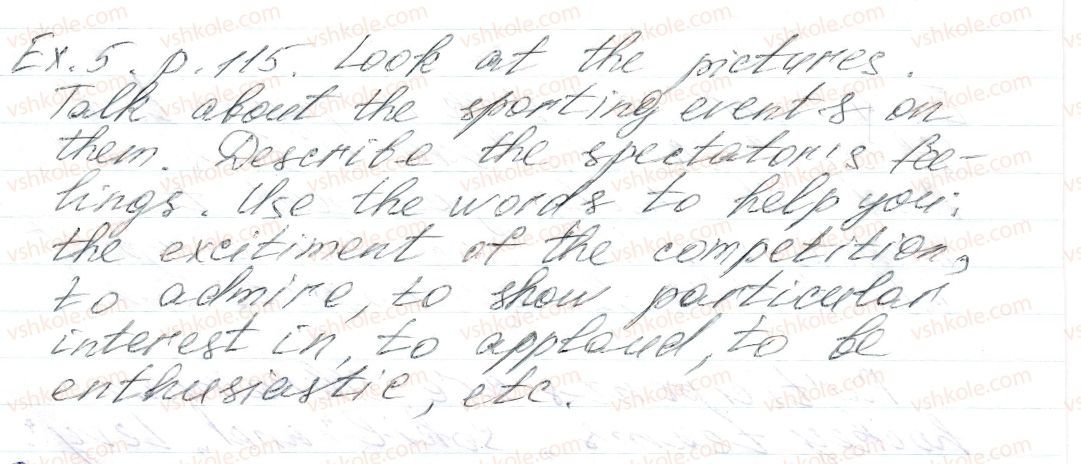 Ex. 5. p. 115. Look at the pictures.
Talk about the sporting events on
them. Describe the spectator's fee-
lings. Use the words to help you:
the excitiment of the competition,
to admire, to show particular
interest in, to applaud, to be
enthusiastic, etc.